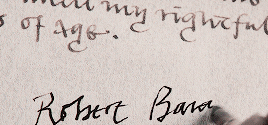 until my rightful
s of Age.
Robert Bara